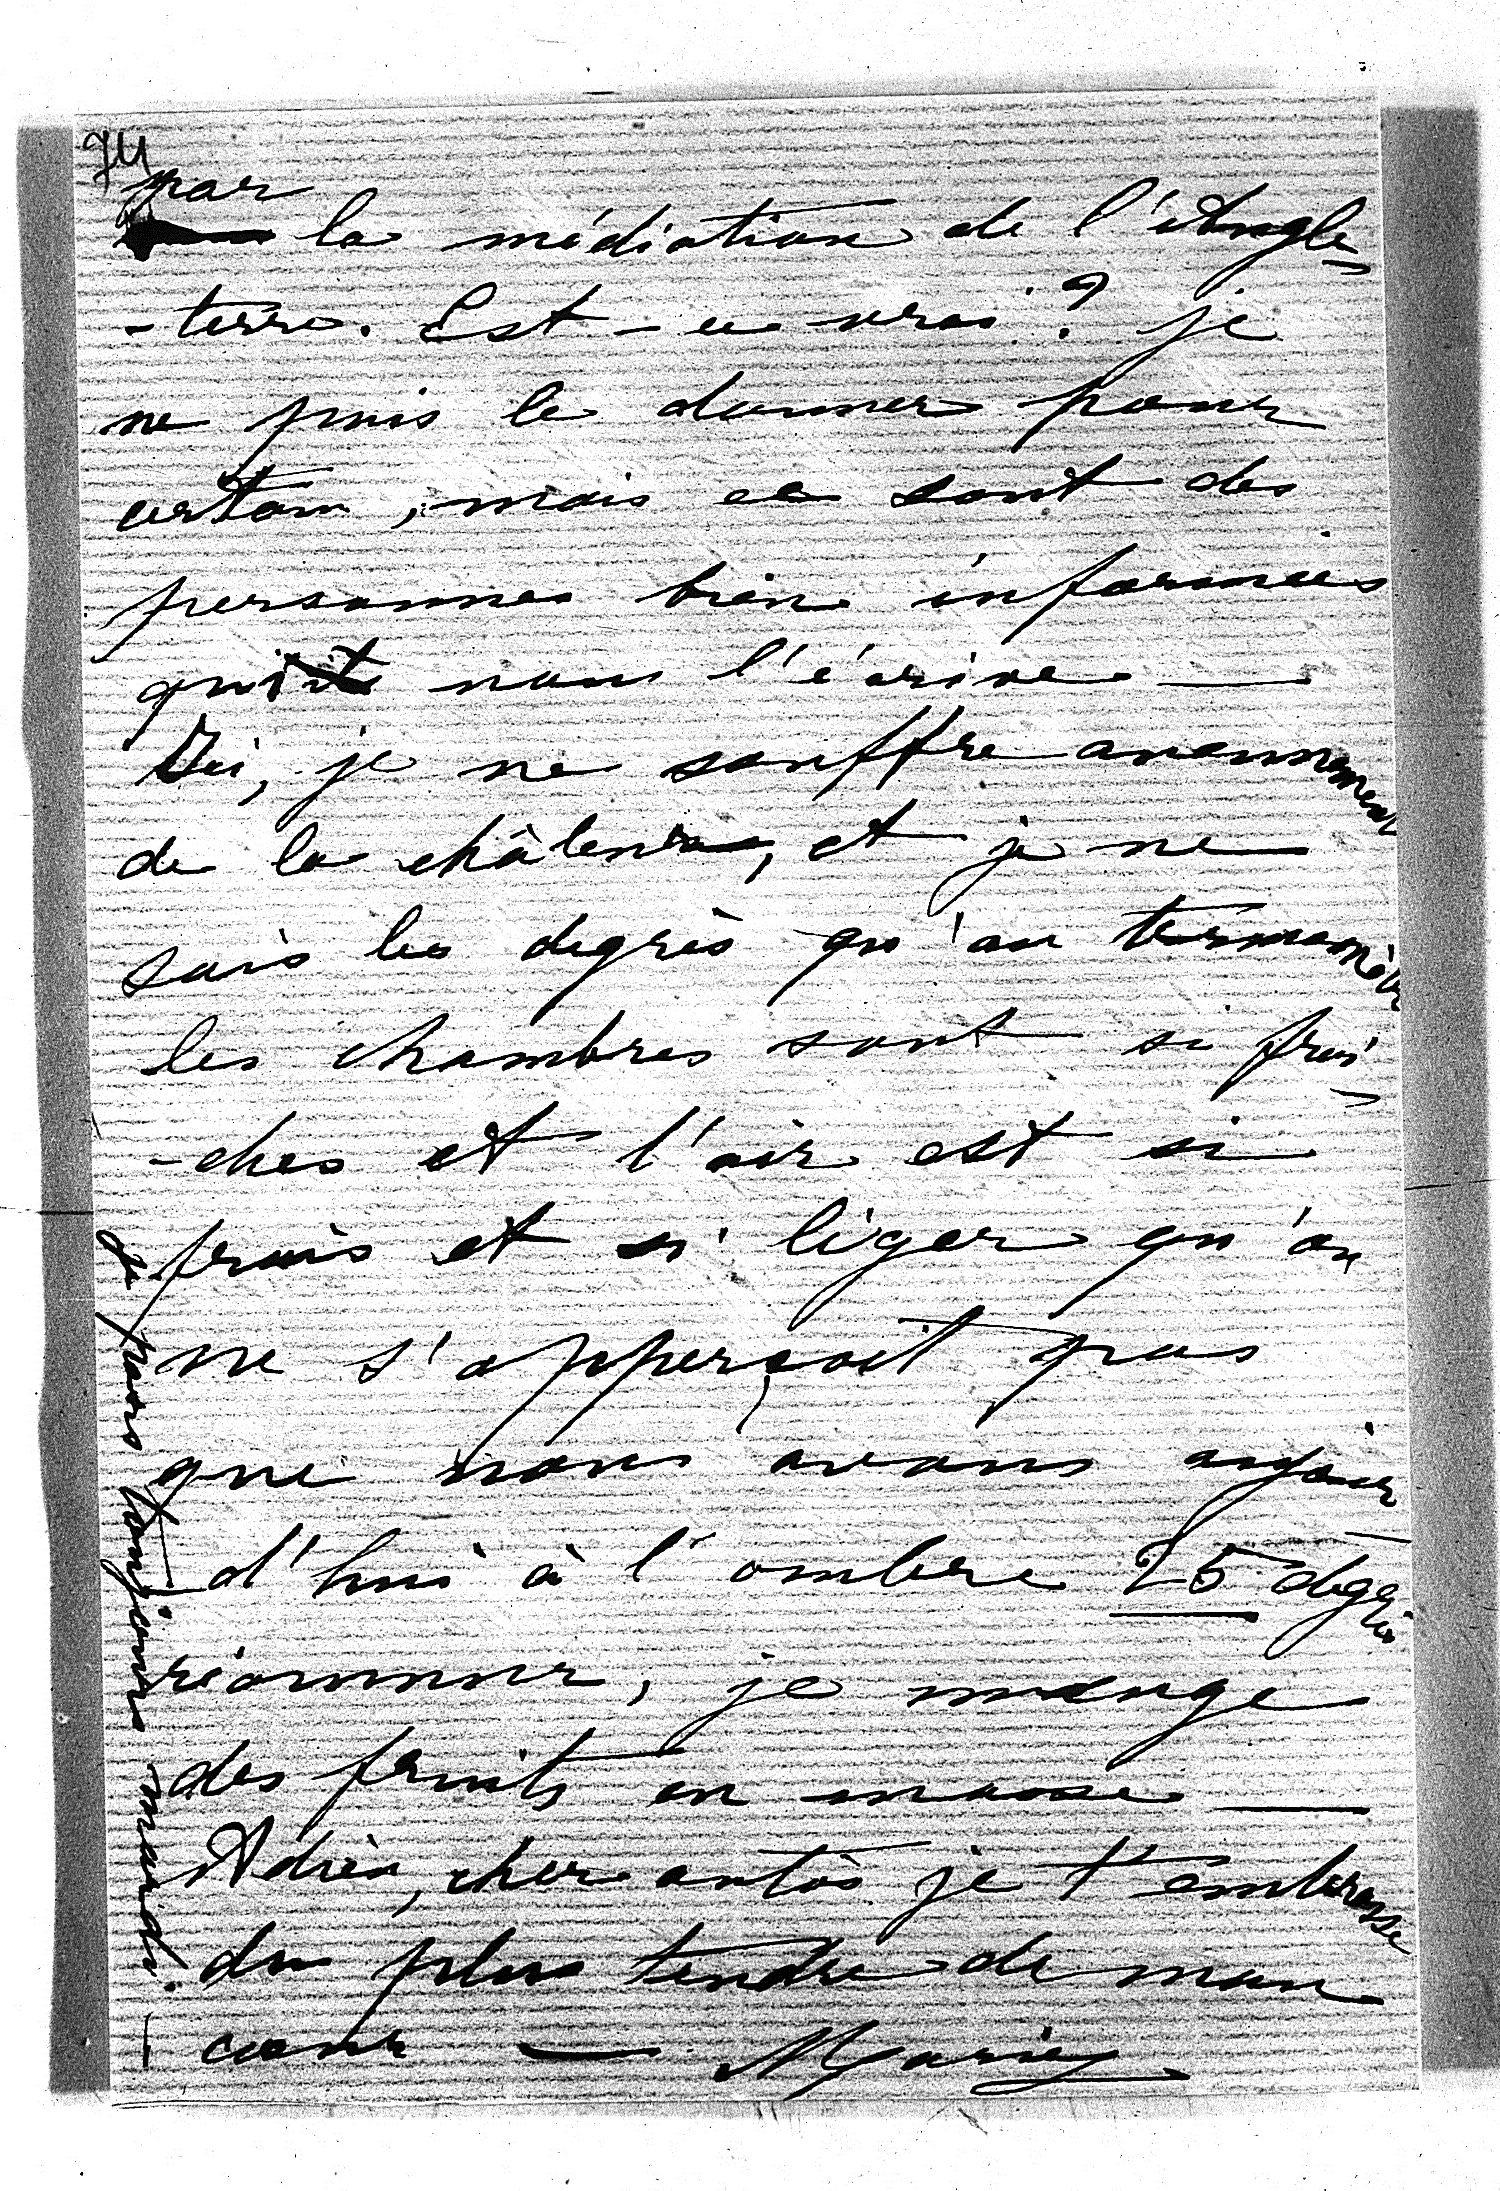 74
par
la médiation de l'Angle-
-terre. Est-ce vrai? je
ne puis le donner pour
certain, mais ce sont des
personnes bien informées
qui nous l'écrive —
Ici, je ne souffre aucunnement
de la châleur, et je ne
sais les degrès qu'au termomètre
les chambres sont si frai-
-ches et l'air est si
frais et si lèger qu'on
ne s'apperçoit pas
que nous avons aujour-
d'hui à l'ombre 25 degrès
réaumur, je mange
des fruits en masse —
Adieu, cher antos je t'embrasse
du plus tendre de mon
coeur — Marie
Je pars toujours mardi. —